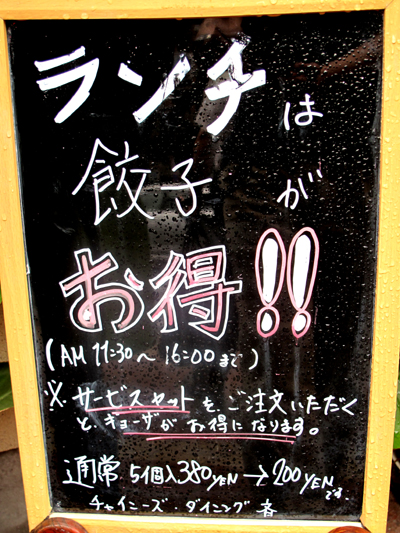 ランチは
餃子が
お得!!
(AM 11:30～16:00まで)
※サービスセットをご注文いただく
と、ギョーザがお得になります。
通常 5個入380YEN→200YENです。
チャイニーズ・ダイニング